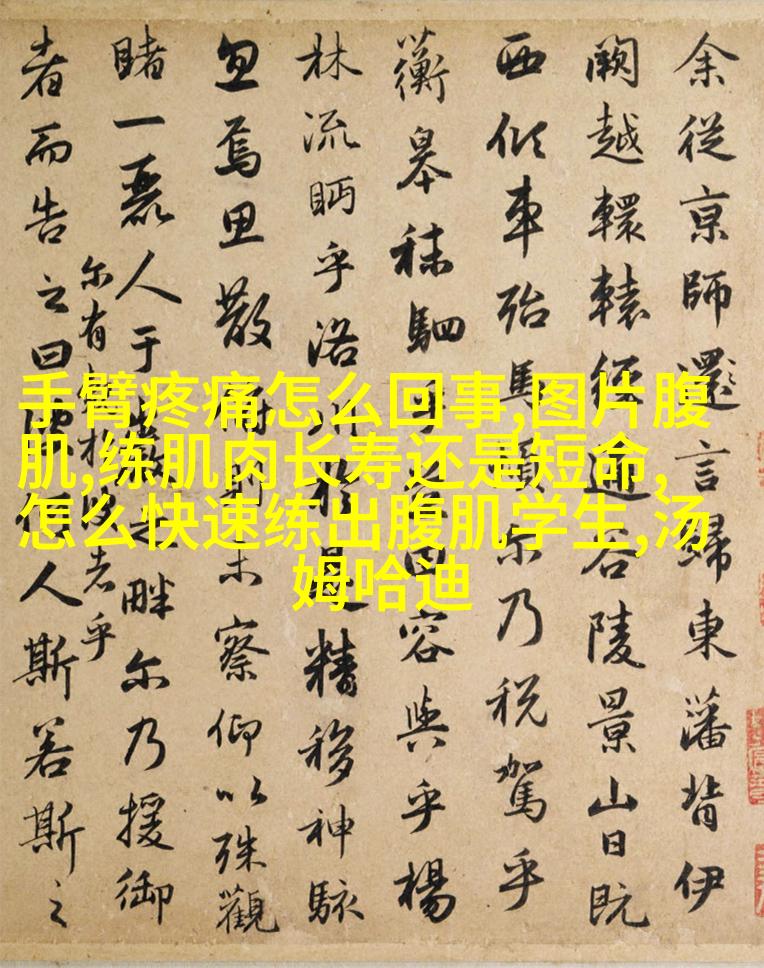 手臂疼痛怎么回事,图片腹
肌,练肌肉长寿还是短命,
怎么快速练出腹肌学生,汤
姆哈迪
余從京師還言歸東藩背伊
闕越轘轅經通谷陵景山日既
西傾車殆馬煩尔乃税駕乎
蘅皋秣駟乎芝田容與乎楊
林流眄乎洛川於是精移神駭
忽焉思散俯則未察仰以殊觀
睹一麗人于巖之畔尔乃援御
尔有覿於彼者乎
者而告之曰彼何人斯若斯之